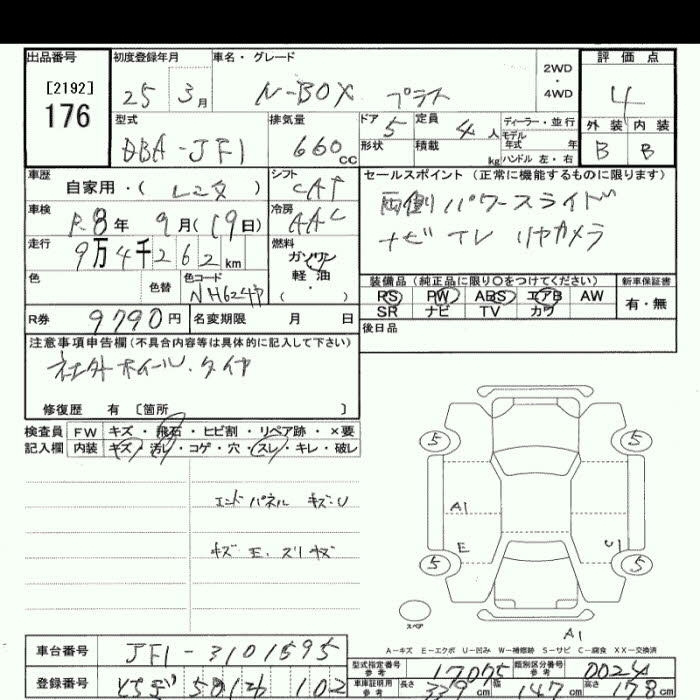 出品番号 初度登録年月 車名・グレード 評価点
[2192] 176 25 3月 N-BOX プラス 2WD・4WD 4
型式 排気量 ドア 5 定員 4人 ディーラー・並行 外装 内装
DBA-JF1 660cc 形状 積載 kg モデル年式 年 B B
ハンドル 左・右
車歴 自家用・( ) シフト CAT セールスポイント(正常に機能するものに限ります)
車検 R.8年 9月(19日) 冷房 AAC 両側パワースライド
走行 9万4千262km 燃料 ガソリン ナビ TV リヤカメラ
色 色替 色コード 軽油 装備品(純正品に限り○をつけてください) 新車保証書
( ・ ) PS PW ABS エアB AW 有・無
R券 9790円 名変期限 月 日 SR ナビ TV カワ
注意事項申告欄(不具合内容等は具体的に記入して下さい) 後日品
社外ホイール.タイヤ
修復歴 有 [箇所 ]
検査員 FW キズ・飛石・ヒビ割・リペア跡・×要
記入欄 内装 キズ・汚レ・コゲ・穴・スレ・キレ・破レ
5 5
エンドパネル キズ.U A1
キズ E. スリキズ E U1
5 5
スペア
A1
A-キズ E-エクボ U-凹み W-補修跡 S-サビ C-腐食 XX-交換済
車台番号 JF1-3101595
型式指定番号 参考 17075 類別区分番号 参考 0024
登録番号 581 102 車庫証明用 参考 長さ 339cm 幅 147cm 高さ 178cm